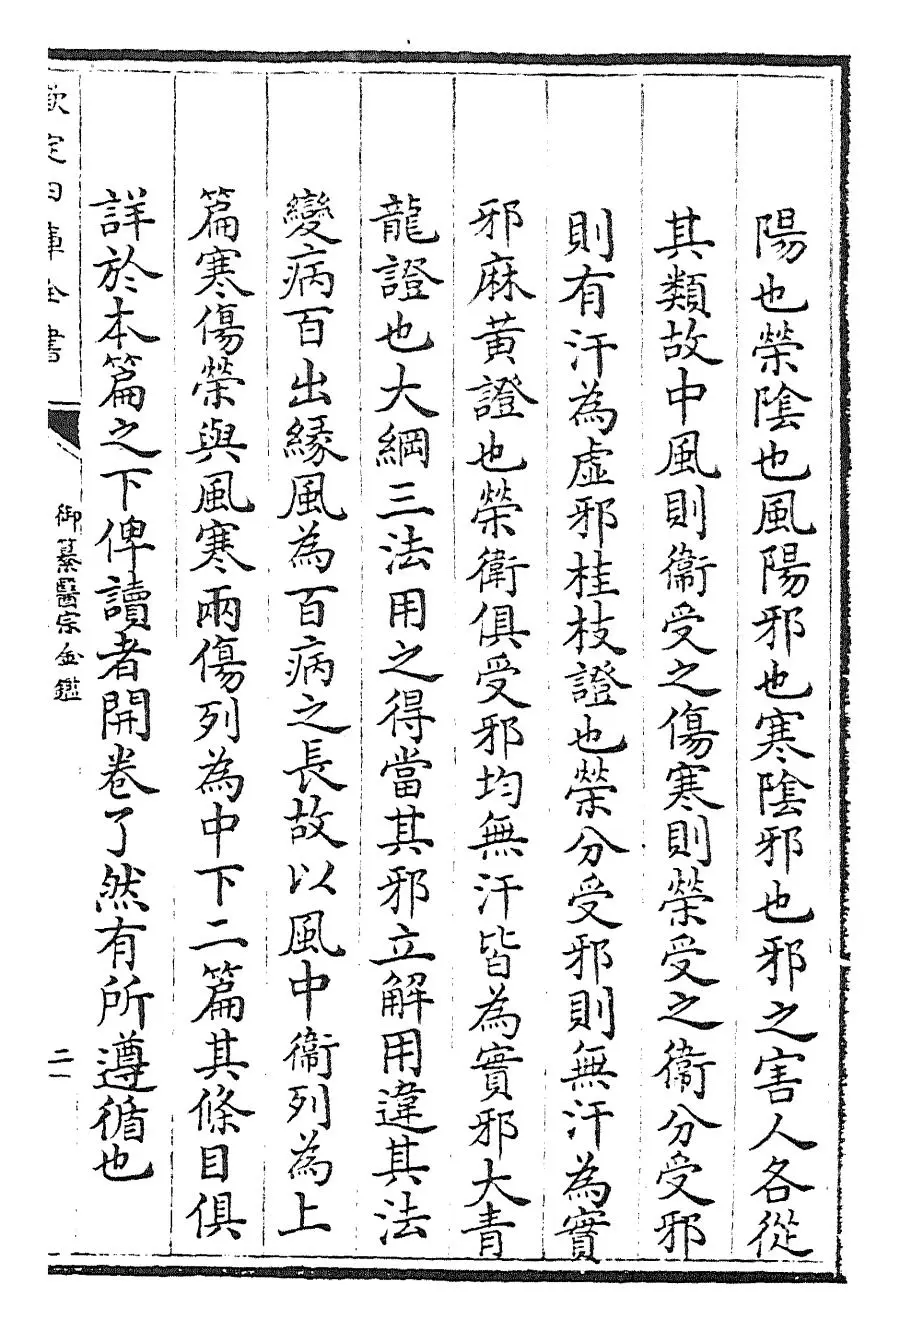 陽也榮陰也風陽邪也寒陰邪也邪之害人各從
其類故中風則衞受之傷寒則榮受之衞分受邪
則有汗為虛邪桂枝證也榮分受邪則無汗為實
邪麻黃證也榮衛俱受邪均無汗皆為實邪大青
龍證也大綱三法用之得當其邪立解用違其法
變病百出緣風為百病之長故以風中衞列為上
篇寒傷榮與風寒兩傷列為中下二篇其條目俱
詳於本篇之下俾讀者開卷了然有所遵循也
欽定四庫全書
御纂醫宗金鑑
二